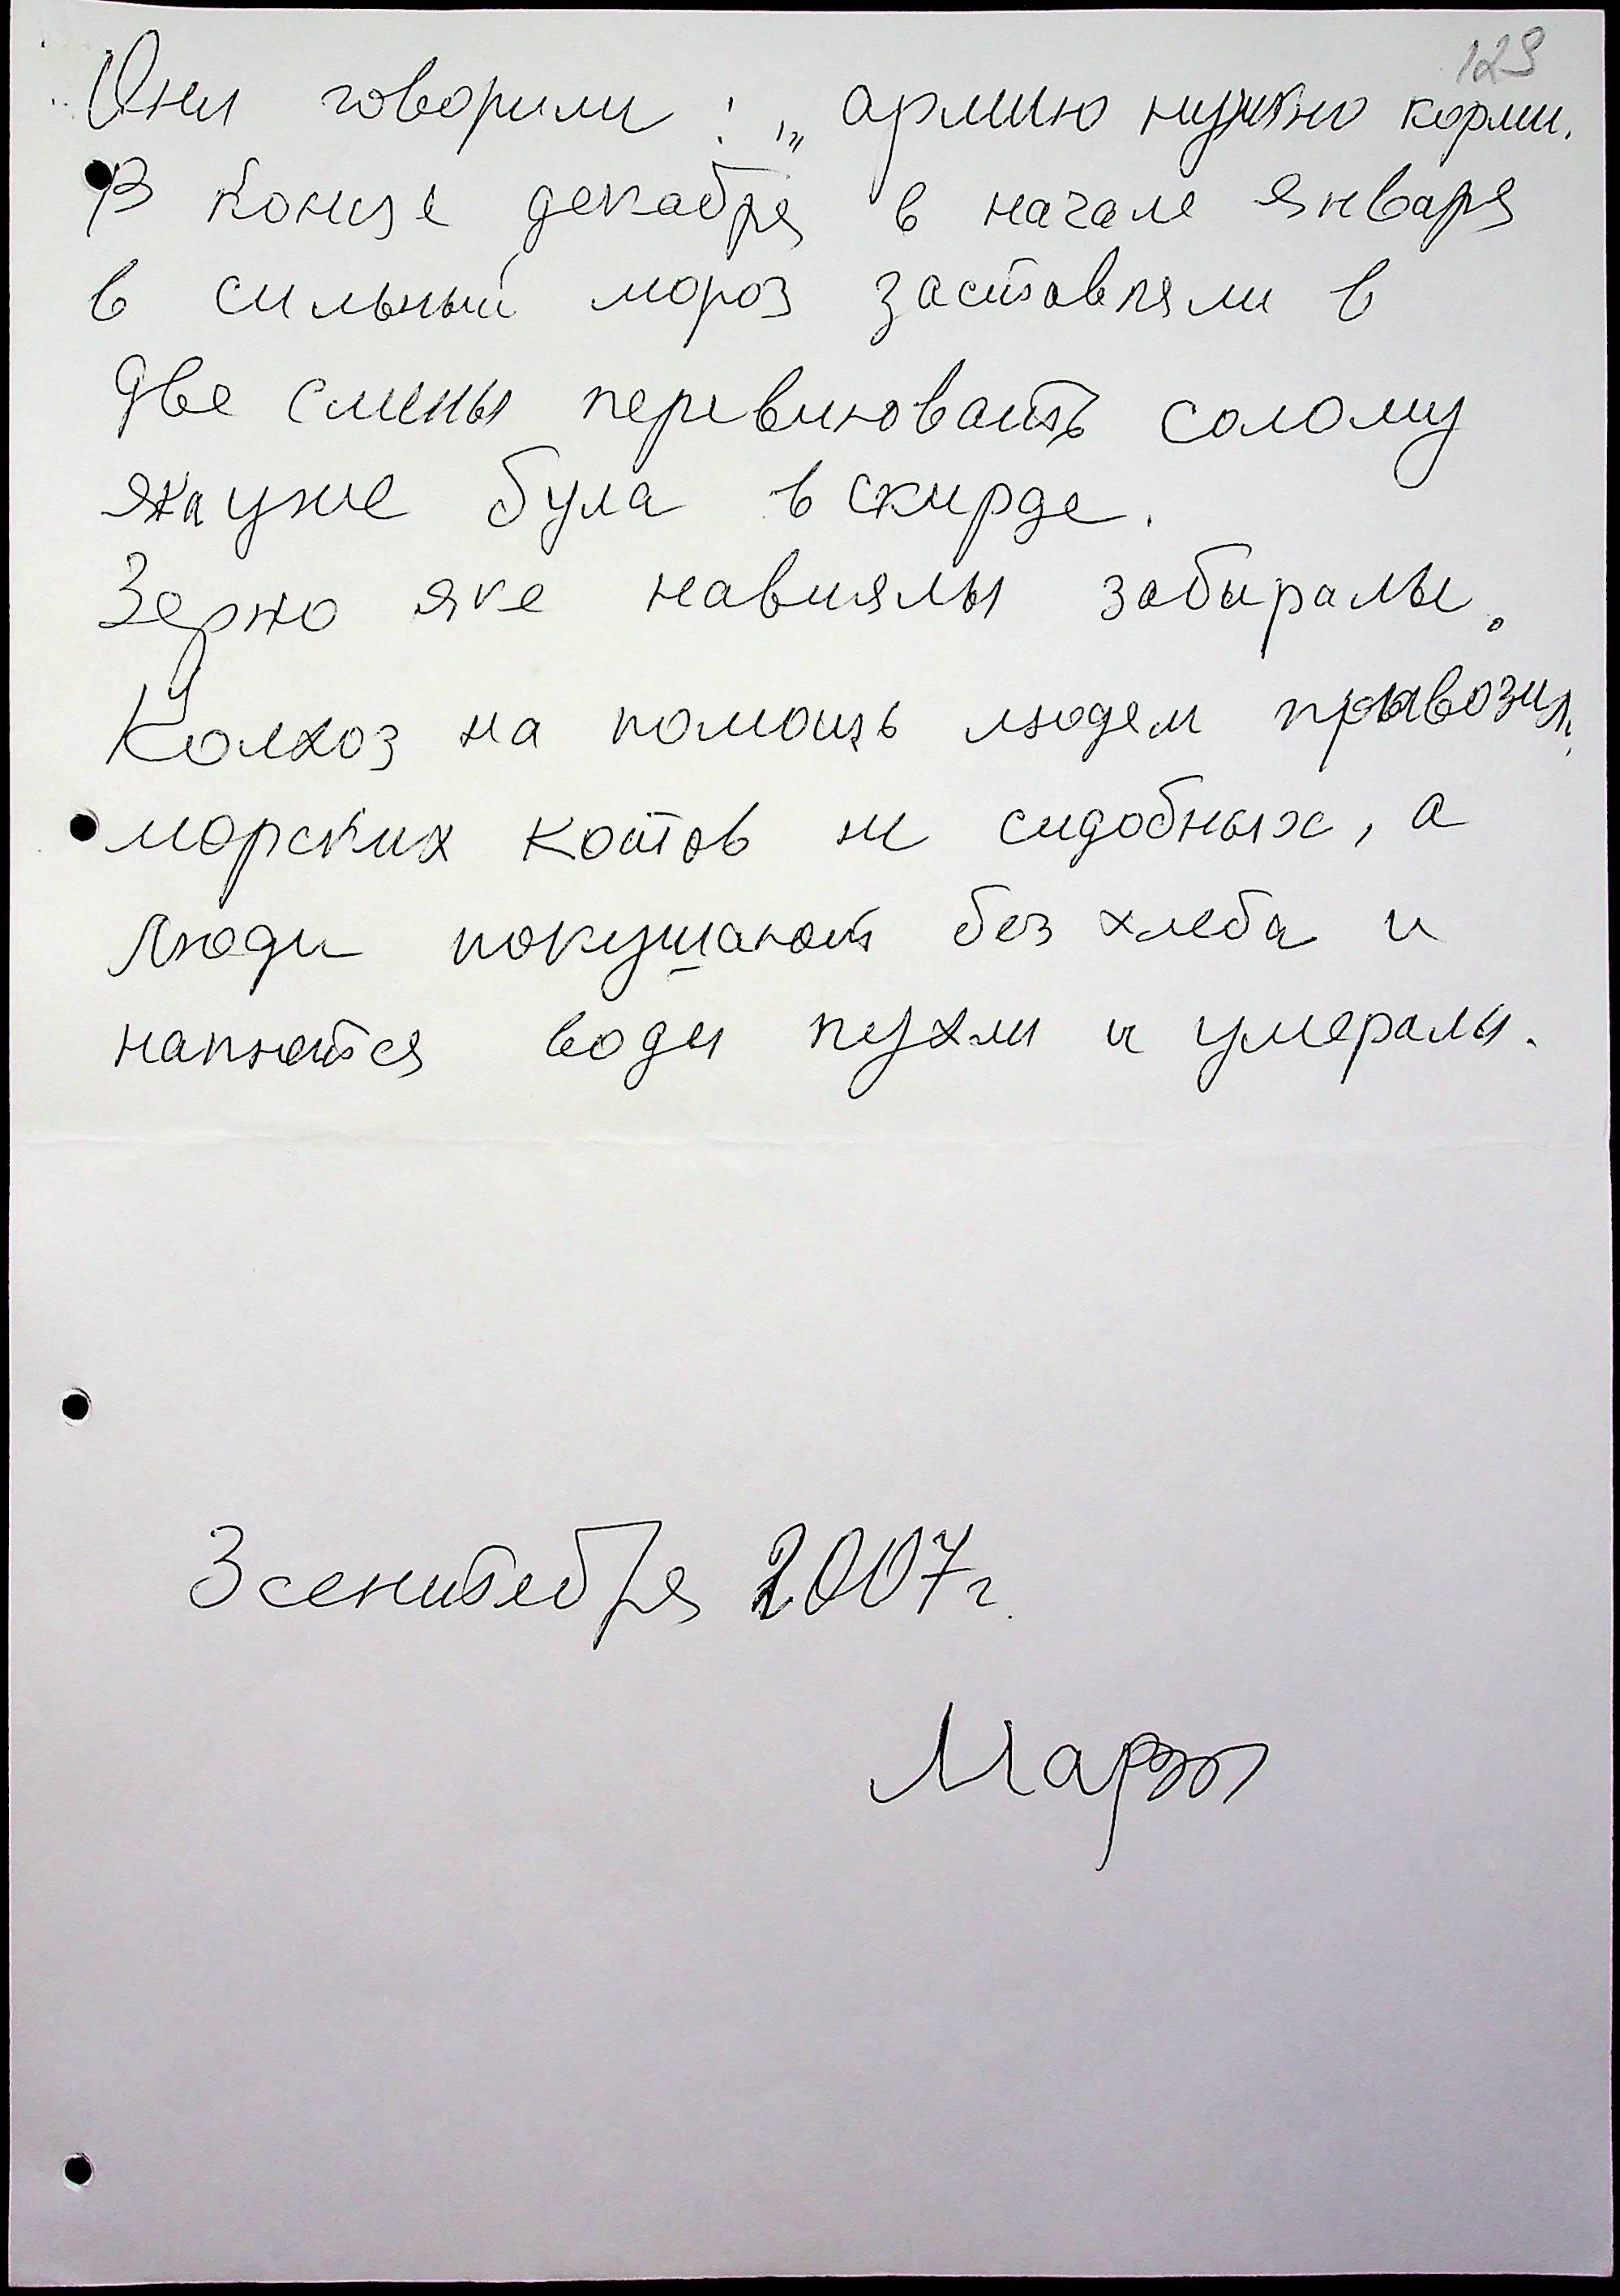 129
Они говорили: „ армию нужно корми.
В конце декабря в начале января
в сильный мороз заставляли в
две смены перевиювать солому
яка уже була в скирде.
Зерно яке навиялы забиралы.
Колхоз на помощь людям прывозил
морских котов не сидобных, а
люди покушают без хлеба и
напются воды пухли и умералы.
3 сентебря 2007г.